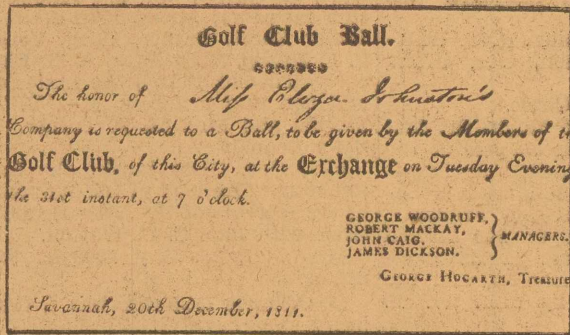 Golf Club Ball.
The honor of Miss Eliza Johnston's
Company is requested to a Ball, to be given by the Members of
Golf Club, of this City, at the Exchange on Tuesday Evening
the 31st instant, at 7 o'clock.
GEORGE WOODRUFF,
ROBERT MACKAY,
JOHN CAIG,
JAMES DICKSON.
MANAGERS.
GEORGE HOGARTH, Treasure
Savannah, 20th December, 1811.